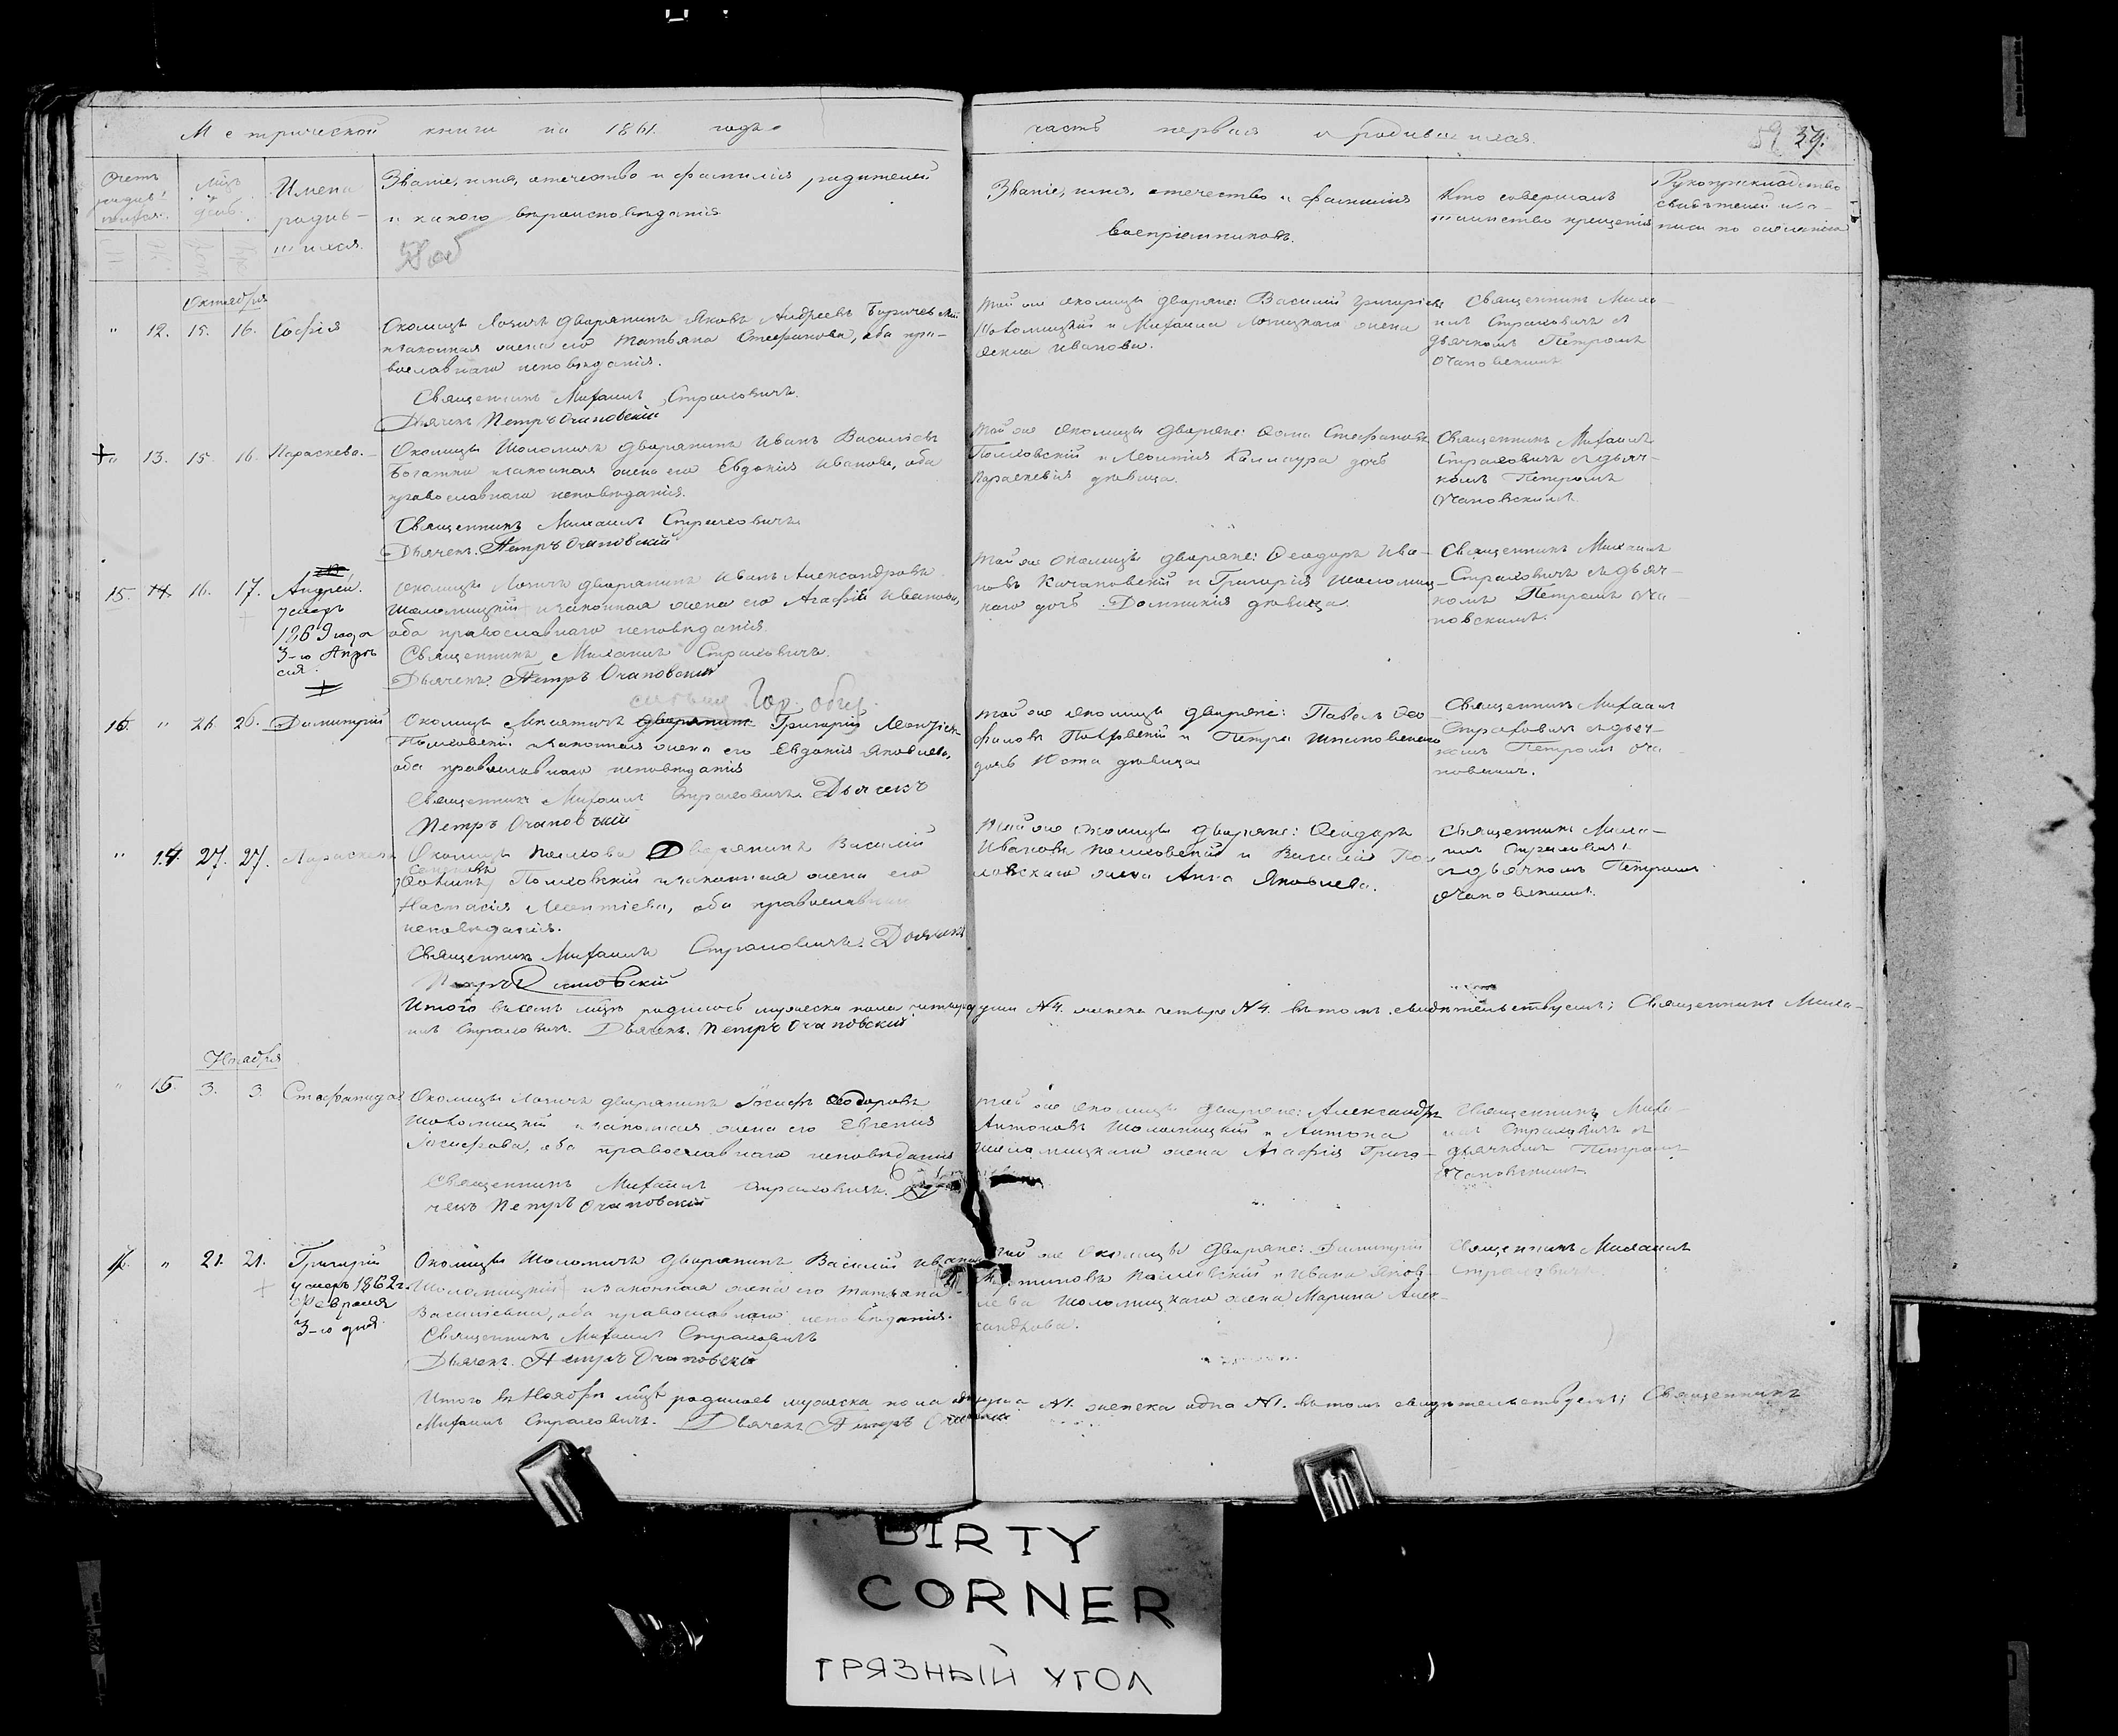 Метрической книги на 1861 годъ
часть первая о родившихся.
39.
Счетъ родив-шихся.
Мѣс. и день.
Имена родив-шихся.
Званіе, имя, отечество и фамилія родителей
и какого вѣроисповѣданія.
Званіе, имя, отечество и фамилія
воспріемниковъ.
Кто совершалъ
таинство крещенія
Рукоприкладство
свидѣтелей
по желанію
Октября
" 12. 15. 16. Софія
Околицы Лозичъ дворянинъ Яковъ Андреевъ
и законная жена его Татьяна Стефанова, оба пра-
вославнаго исповѣданія.
Священникъ Михаилъ Страховичъ.
Дьячекъ Петръ Очаповскій
той же околицы дворяне: Василій Григорьевъ
и Михаила жена
Ивановна.
Священникъ Миха-
илъ Страховичъ съ
дьячкомъ Петромъ
Очаповскимъ
" 13. 15. 16. Параскева.
Околицы Шоломичъ дворянинъ Иванъ Васильевъ
и законная жена его Евдокія Иванова, оба
православнаго исповѣданія.
Священникъ Михаилъ Страховичъ
Дьячекъ Петръ Очаповскій
той же околицы дворяне: Ѳома Стефановъ
Полховскій и Леонтія дочь
Параскевія дѣвица.
Священникъ Михаилъ
Страховичъ съ дьяч-
комъ Петромъ
Очаповскимъ.
15. 14. 16. 17. Андрей.
умеръ
1869 года
3-го Апрѣ
ля.
Околицы Лозичъ дворянинъ Иванъ Александровъ
Шоломицкій и законная жена его Агафія Иванова,
оба православнаго исповѣданія
Священникъ Михаилъ Страховичъ.
Дьячекъ Петръ Очаповскій
той же околицы дворяне: Ѳеодоръ Ива-
новъ Качановскій и Григорія Шоломиц-
каго дочь Домникія дѣвица.
Священникъ Михаилъ
Страховичъ съ дьяч-
комъ Петромъ Оча-
повскимъ.
16. " 26. 26. Димитрій
Околицы дворянинъ Григорій Леонтьев
Полховскій и законная жена его Евдокія Яковлева,
оба православнаго исповѣданія
Священникъ Михаилъ Страховичъ. Дьячекъ
Петръ Очаповскій
той же околицы дворяне: Павелъ
и Петра
дочь дѣвица
Священникъ Михаилъ
Страховичъ съ дьяч-
комъ Петромъ Оча-
повскимъ.
" 14. 27. 27. Параскева
Околицы Полхова Дворянинъ Василій
Полховскій и законная жена его
Настасія Леонтіева, оба православнаго
исповѣданія.
Священникъ Михаилъ Страховичъ. Дьячекъ
Петръ Очаповскій
той же околицы дворяне: Ѳеодоръ
Ивановъ Полховскій и Василія Пол-
ховскаго жена Анна Яковлева.
Священникъ Миха-
илъ Страховичъ
съ дьячкомъ Петромъ
Очаповскимъ.
Итого въ семъ мѣсяцѣ родилось мужеска пола четыре души №4. женска четыре №4. въ томъ свидѣтельствуемъ; Священникъ Миха-
илъ Страховичъ. Дьячекъ Петръ Очаповскій
Ноября
" 15. 3. 3. Стефанида
Околицы Лозичъ дворянинъ Іосифъ Ѳеодоровъ
Шоломицкій и законная жена его Евгенія
Іосифова, оба православнаго исповѣданія
Священникъ Михаилъ Страховичъ.
чекъ Петръ Очаповскій
той же околицы дворяне: Александръ
Антоновъ Шоломицкій и Антона
Шоломицкаго жена Агафія Григо-
Священникъ Миха-
илъ Страховичъ съ
дьячкомъ Петромъ
Очаповскимъ
17. " 21. 21. Григорій
умеръ 1862 г.
Февраля
3-го дня
Околицы Шоломичъ дворянинъ Василій Ивановъ
Шоломицкій и законная жена его Татьяна
Васильевна, оба православнаго исповѣданія.
Священникъ Михаилъ Страховичъ
Дьячекъ Петръ Очаповскій
той же околицы дворяне: Димитрій
Мартиновъ Полховскій и Ивана Яков-
лева Шоломицкаго жена Марина Алек-
сандрова.
Священникъ Михаилъ
Страховичъ.
Итого въ Ноябрѣ мѣсяцѣ родилось мужеска пола одна душа №1. женска одна №1. въ томъ свидѣтельствуемъ; Священникъ
Михаилъ Страховичъ. Дьячекъ Петръ Очаповскій
DIRTY
CORNER
ГРЯЗНЫЙ УГОЛ